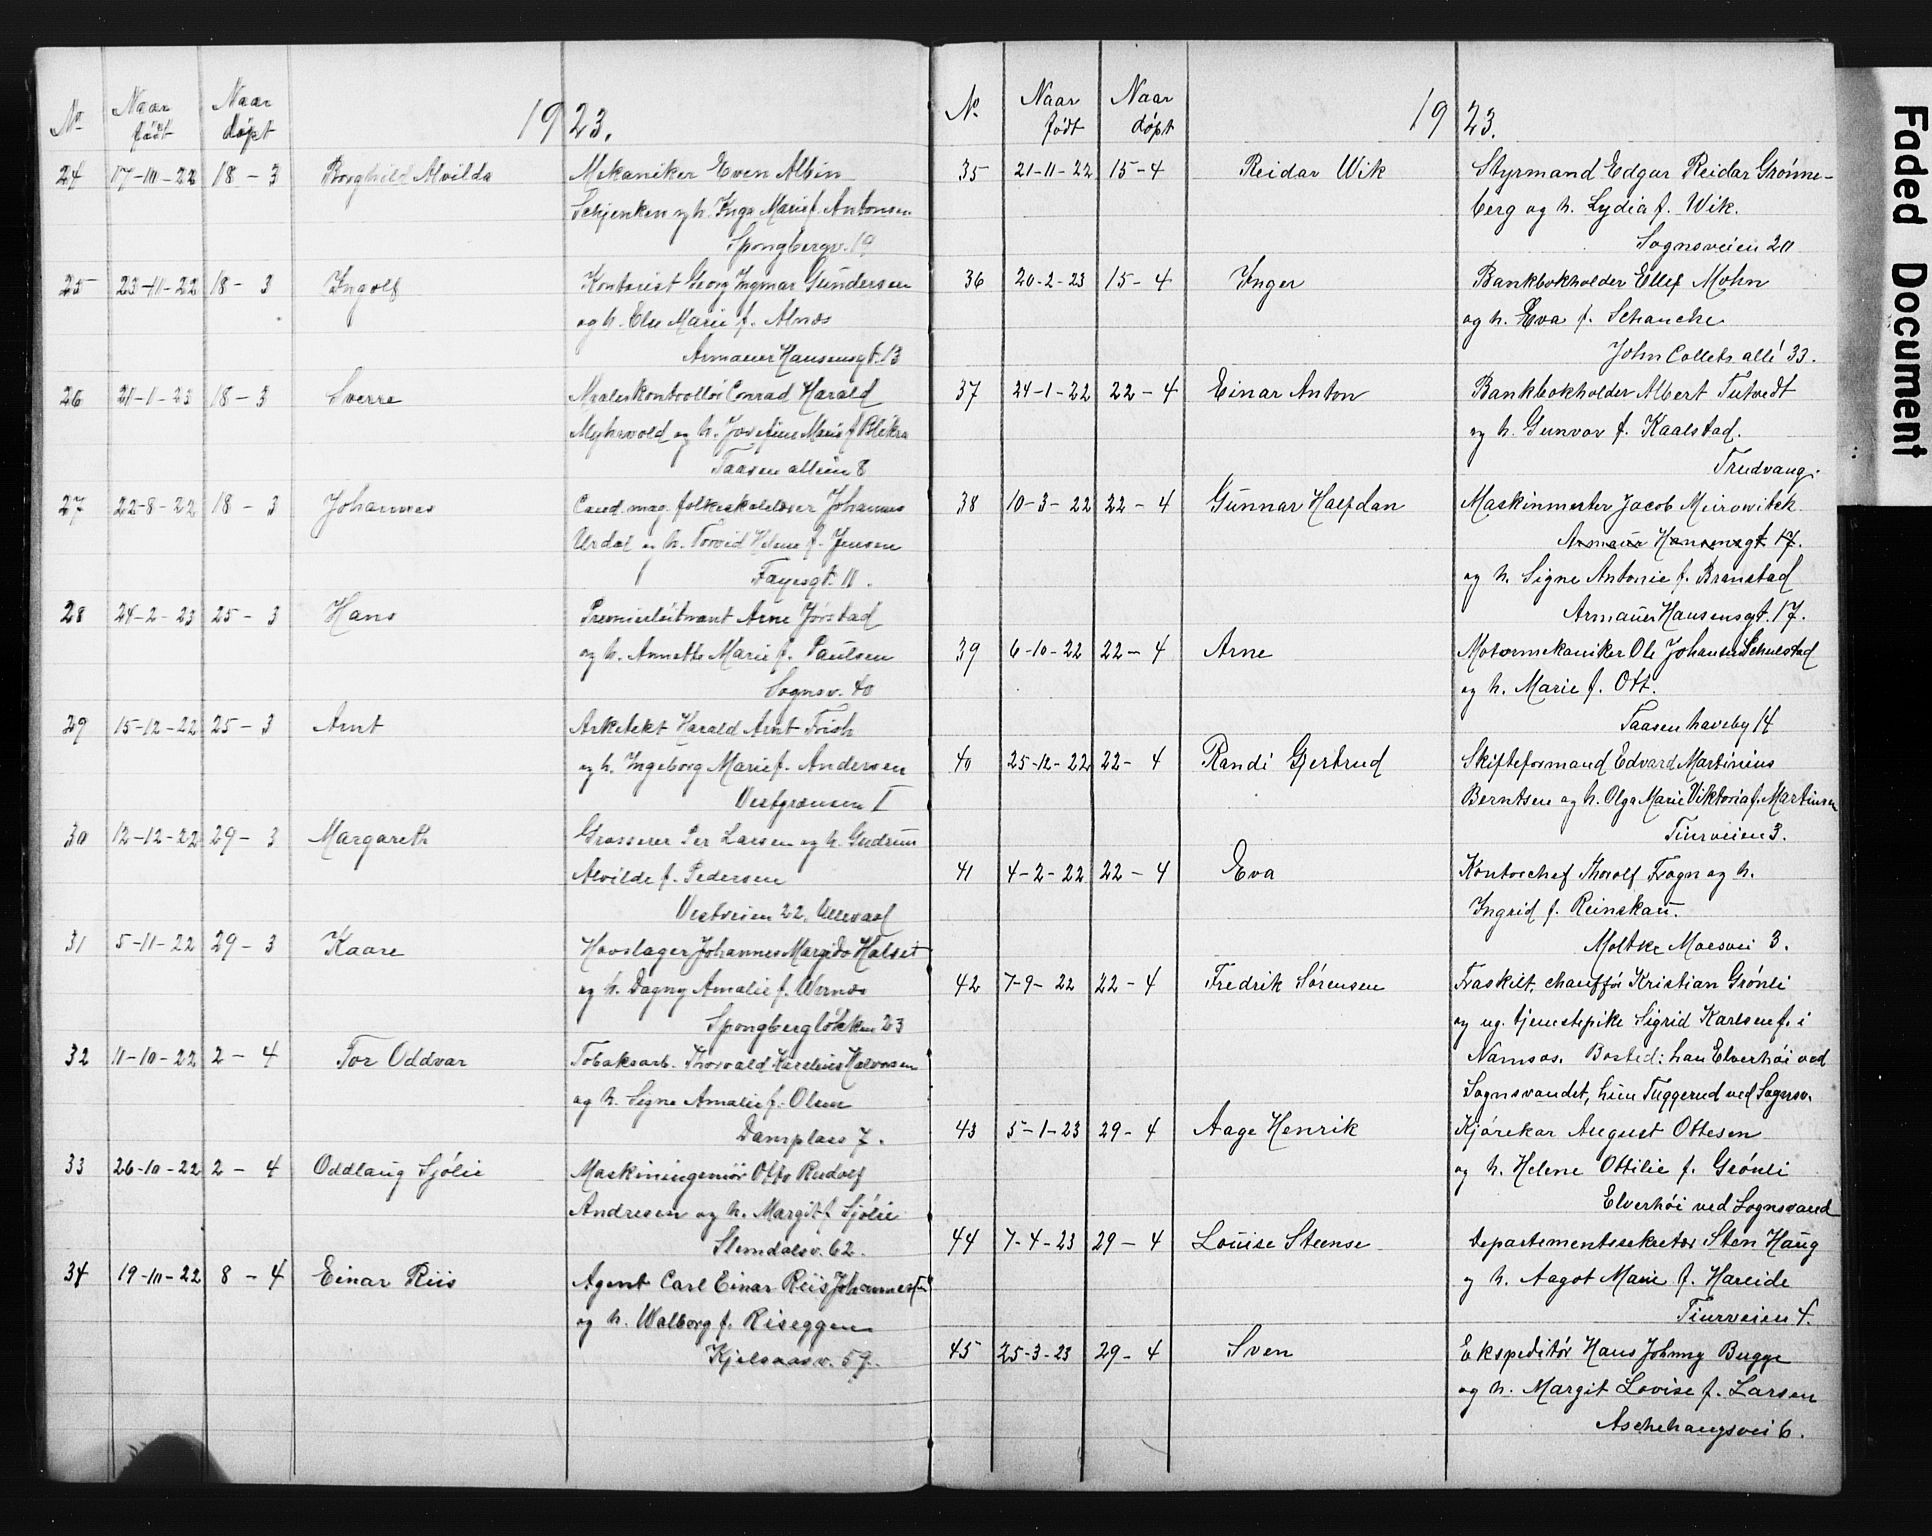 No Naar født Naar døpt 1923.
24 17-10-22 18-3 Borghild Alvilda Mekaniker Even Albin
Schjenken og h. Inga Marie f. Antonsen
Spongbergv. 19
25 23-11-22 18-3 Ingolf Kontorist Georg Ingmar Gundersen
og h. Else Marie f. Alnæs
Armauer Hansensgt. 13
26 21-1-23 18-3 Sverre Maaleskontrollør Conrad Harald
Myhrvold og h. Josefine Marie f. Blikra
Taasen alleen 8
27 22-8-22 18-3 Johannes Cand. mag. folkeskolelærer Johannes
Urdal og h. Torvid Helene f. Jensen
Fayesgt. 11.
28 24-2-23 25-3 Hans Premierløitnant Arne Jørstad
og h. Annette Marie f. Paulsen
Sognsv. 40
29 15-12-22 25-3 Arnt Arkitekt Harald Arnt Friis
og h. Ingeborg Marie f. Andersen
Vestgrænsen I
30 12-12-22 29-3 Margareth Grosserer Per Larsen og h. Gudrun
Alvilde f. Pedersen
Vestveien 22, Ullevaal
31 5-11-22 29-3 Kaare Hovslager Johannes Margido Halset
og h. Dagny Amalie f. Wernæs
Spongbergløkken 23
32 11-10-22 2-4 Tor Oddvar Tobaksarb. Thorvald Karelius Halvorsen
og h. Signe Amalie f. Olsen
Damplass 7.
33 26-10-22 2-4 Oddlaug Sjølie Maskiningeniør Otto Rudolf
Andresen og h. Margit f. Sjølie
Slemdalsv. 62.
34 19-10-22 8-4 Einar Riis Agent Carl Einar Riis Johannessen
og h. Walborg f. Riseggen
Kjelsaasv. 57.
No Naar født Naar døpt 1923.
35 21-11-22 15-4 Reidar Wik Styrmand Edgar Reidar Grønne-
berg og h. Lydia f. Wik.
Sognsveien 20
36 20-2-23 15-4 Inger Bankbokholder Ellef Mohn
og h. Eva f. Schancke
John Collets allé 33.
37 24-1-22 22-4 Einar Anton Bankbokholder Albert Tutvedt
og h. Gunvor f. Kaalstad.
Trudvang.
38 10-3-22 22-4 Gunnar Halfdan Maskinmester Jacob Meirowitck
Armauer Hansensgt 17.
og h. Signe Antonie f. Branstad
Armauer Hansensgt. 17.
39 6-10-22 22-4 Arne Motormekaniker Ole Johansen Schulstad
og h. Marie f. Ott.
Taasen haveby 14
40 25-12-22 22-4 Randi Gjertrud Skifteformand Edvard Martinius
Berntsen og h. Olga Marie Viktoria f. Martinsen
Tiurveien 3.
41 4-2-22 22-4 Eva Kontorchef Thorolf Fragn og h.
Ingrid f. Reinskau.
Moltke Moesvei 3.
42 7-9-22 22-4 Fredrik Sørensen Fraskilt, chauffør Kristian Grønli
og ug. tjenestepike Sigrid Karlsen f. i
Namsos. Bosted: han Elverhøi ved
Sognsvandet, hun Tuggerud ved Sognsv.
43 5-1-23 29-4 Aage Henrik Kjørekar August Ottesen
og h. Helene Ottilie f. Grønli
Elverhøi ved Sognsvand
44 7-4-23 29-4 Louise Steense Departementssekretær Sten Haug
og h. Aagot Marie f. Hareide
Tiurveien 4.
45 25-3-23 29-4 Sven Ekspeditør Hans Johnny Bugge
og h. Margit Lovise f. Larsen
Aschehaugsvei 6.
Faded Document